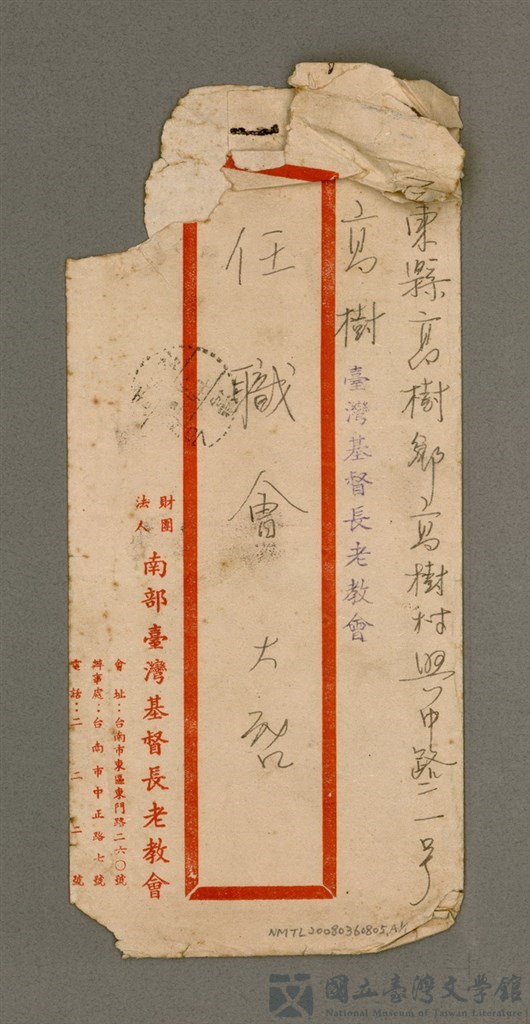 屏東縣高樹鄉高樹村興中路二一号
高樹
臺灣基督長老教會
任職會大啓
財團
法人
南部臺灣基督長老教會
會址：台南市東區東門路二六〇號
辦事處：台南市中正路七號
電話：二二二號
NMTL20080360805,A1/1
國立臺灣文學館
National Museum of Taiwan Literature